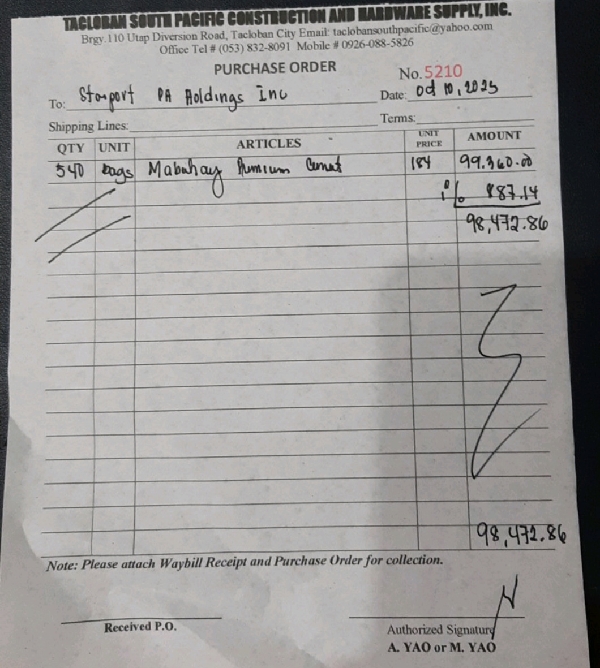 TACLOBAN SOUTH PACIFIC CONSTRUCTION AND HARDWARE SUPPLY, INC.
Brgy. 110 Utap Diversion Road, Tacloban City Email: taclobansouthpacific@yahoo.com
Office Tel # (053) 832-8091 Mobile # 0926-088-5826
PURCHASE ORDER
No. 5210
To: Starport PA Holdings Inc Date: Oct 10, 2025
Shipping Lines: Terms:
QTY UNIT ARTICLES UNIT PRICE AMOUNT
540 bags Mabuhay Premium Cement 184 99,360.00
1% 887.14
98,472.86
98,472.86
Note: Please attach Waybill Receipt and Purchase Order for collection.
Received P.O. Authorized Signature
A. YAO or M. YAO